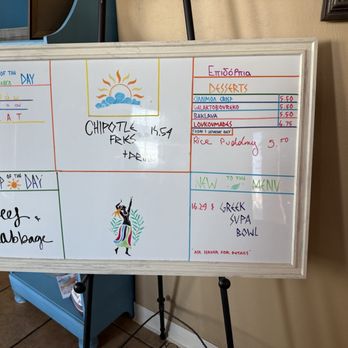 OF THE DAY
A T
CHIPOTLE 15.54
FRIES
Επιδόρπια
DESSERTS
CINNAMON CRISP 5.50
GALAKTOBOUREKO 5.50
BAKLAVA 5.50
LOUKOUMADES 6.75
Rice Pudding 5.50
OF THE DAY
&
Cabbage
NEW TO THE MENU
16.29 $ GREEK
SUPA
BOWL
ASK SERVER FOR DETAILS